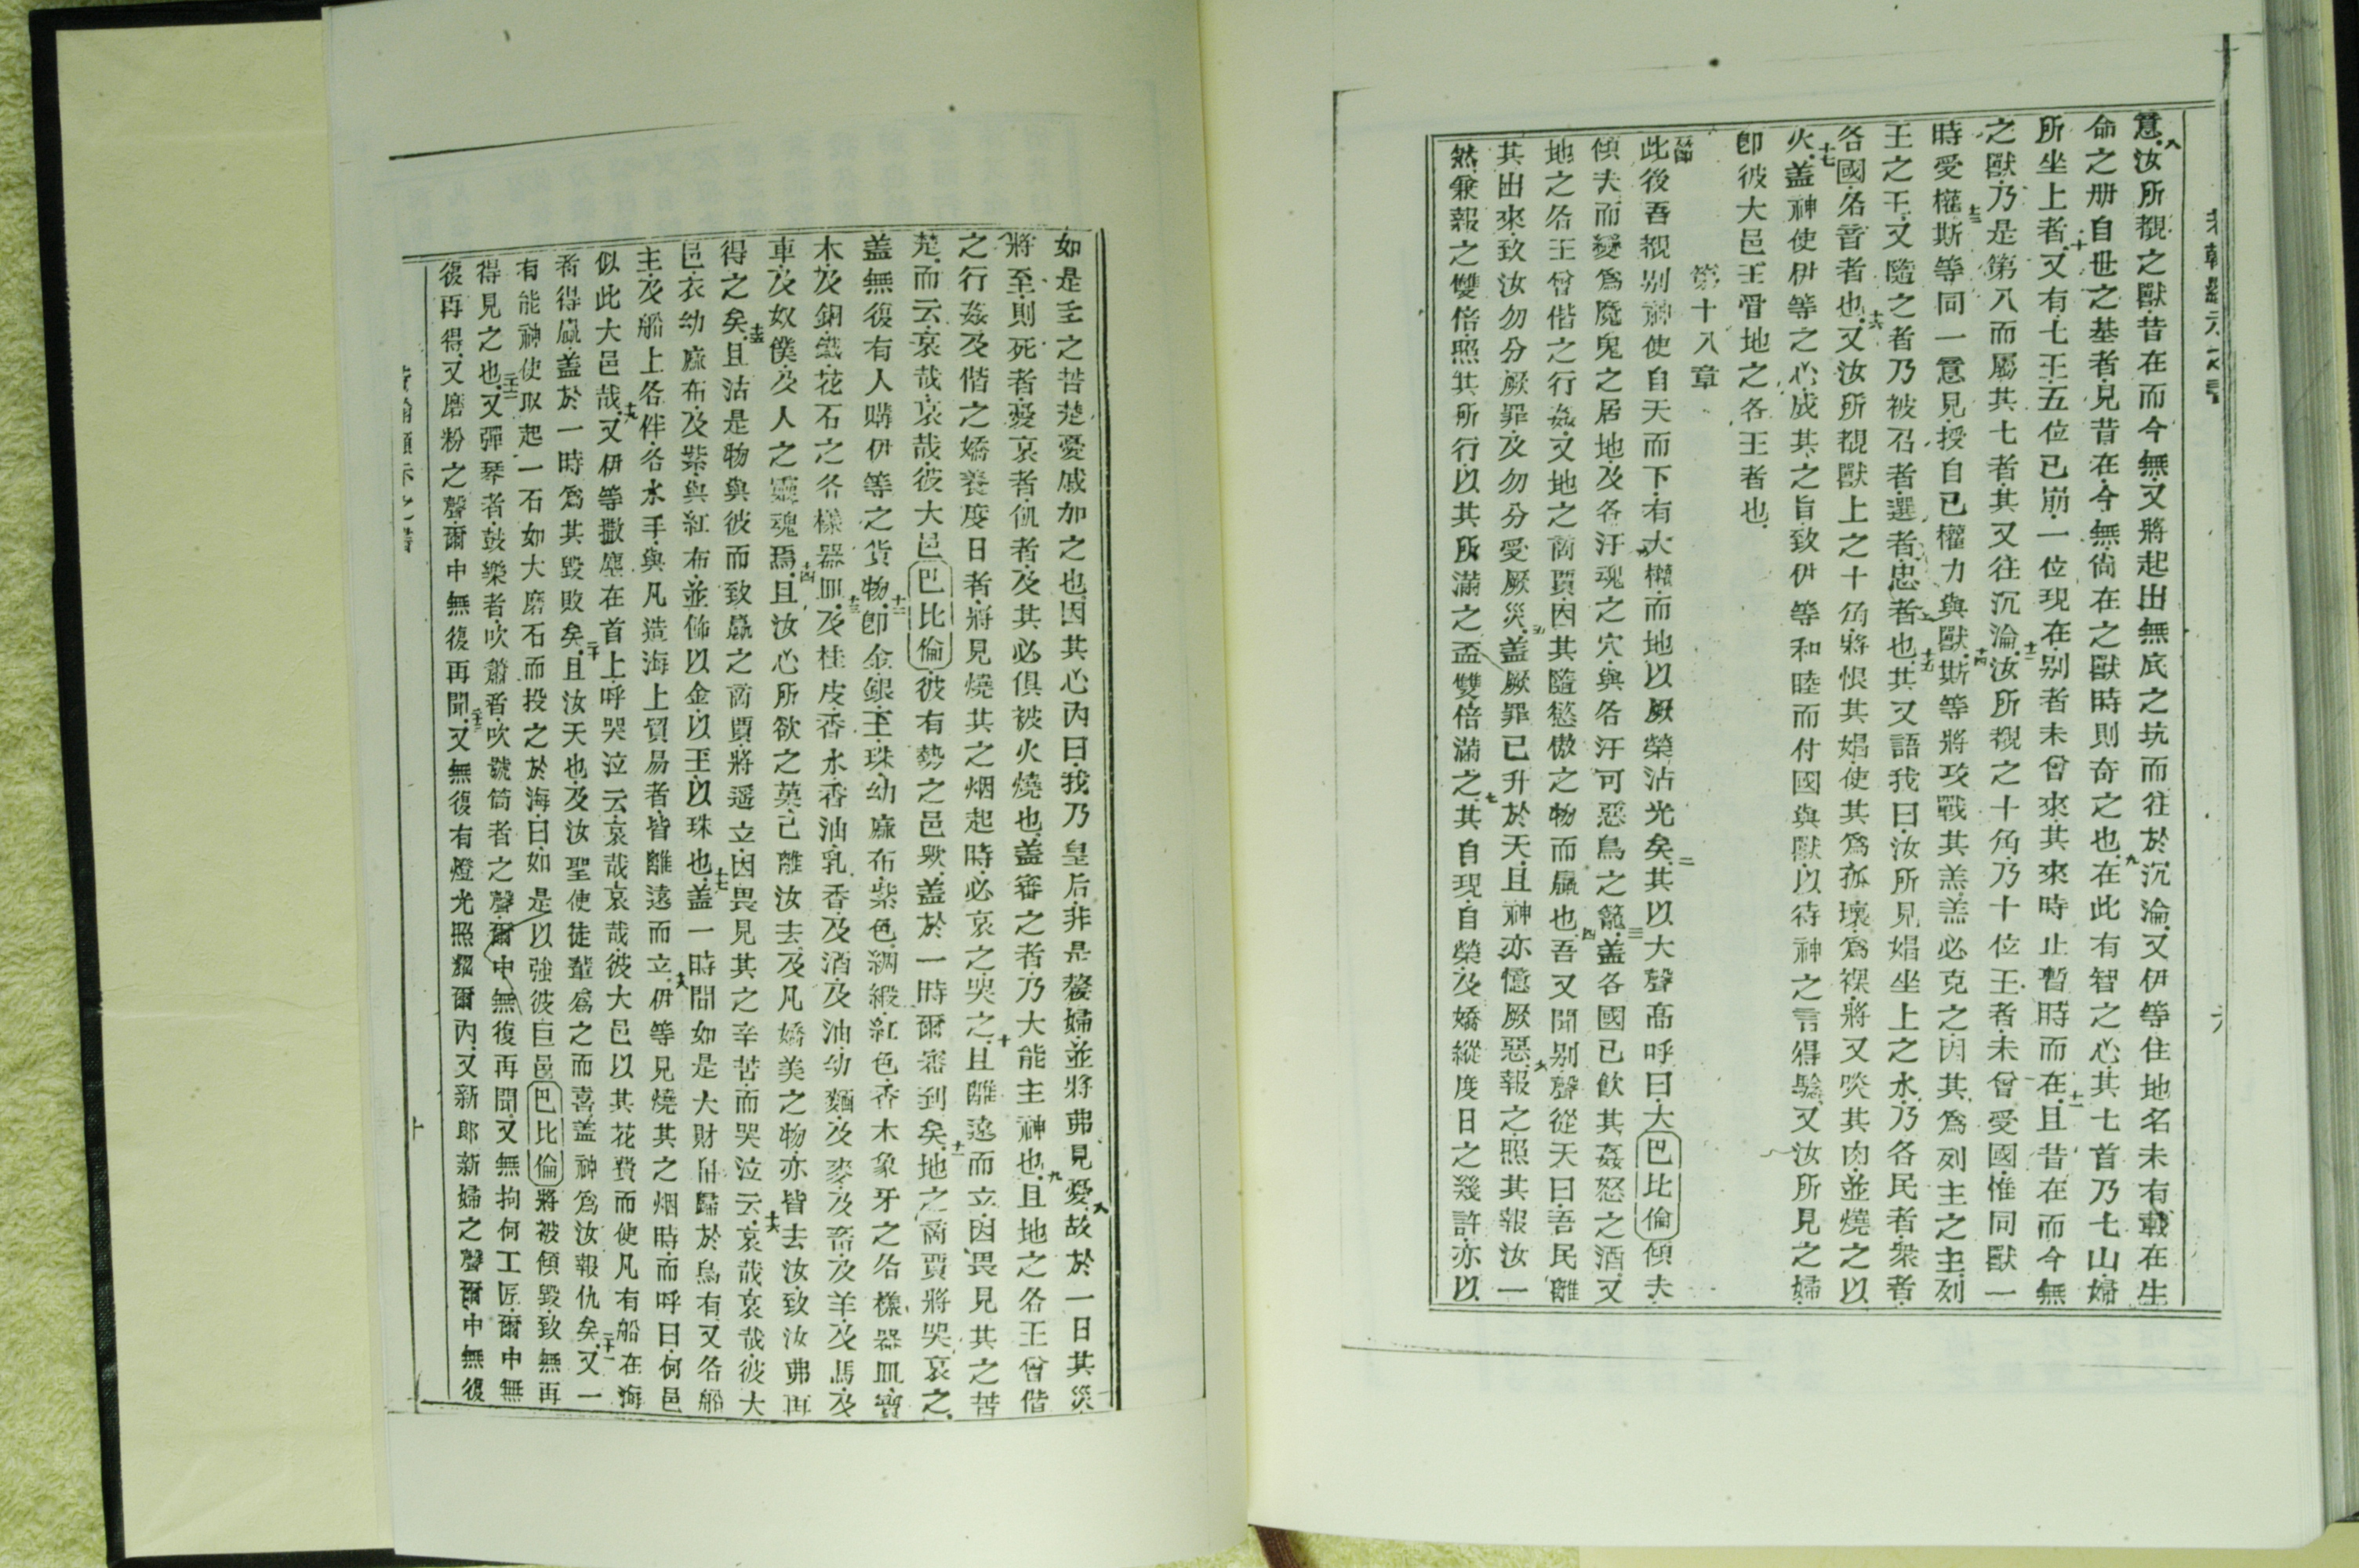 意八汝所覩之獸昔在而今無又將起出無底之坑而往於沉淪又伊等住地名未有載在生
命之册自世之基者見昔在今無尙在之獸時則奇之也九在此有智之心其七首乃七山婦
所坐上者十又有七王五位已崩一位現在别者未曾來其來時止暫時而在十一且昔在而今無
之獸乃是第八而屬其七者其又往沉淪十二汝所覩之十角乃十位王者未曾受國惟同獸一
時愛權十三斯等同一意見授自已權力與獸十四斯等將攻戰其羔羔必克之因其爲列主之主列
王之王又隨之者乃被召者選者忠者也十五其又語我曰汝所見娼坐上之水乃各民者衆者
各國各音者也十六又汝所覩獸上之十角將恨其娼使其爲孤壞爲裸將又啖其肉並燒之以
火十七盖神使伊等之心成其之旨致伊等和睦而付國與獸以待神之言得騐又汝所見之婦
卽彼大邑王管地之各王者也
第十八章
此後吾覩别神使自天而下有大權而地以厥榮沾光矣二其以大聲高呼曰大巴比倫傾夫
傾夫而變爲魔鬼之居地及各汙魂之穴與各汙可惡鳥之籠三盖各國已飮其姦怒之酒又
地之各王曾偕之行姦又地之商賈因其隨慾傲之物而贏也四吾又聞别聲從天曰吾民離
其出來致汝勿分厥罪及勿分受厥災五盖厥罪已升於天且神亦憶厥惡六報之照其報汝一
然兼報之雙倍照其所行以其所滿之盃雙倍滿之七其自現自榮及嬌縱度日之幾許亦以
如是王之苦楚憂戚加之也因其心內曰我乃皇后非是嫠婦並將弗見憂八故於一日其災
將至則死者憂哀者飢者及其必俱被火燒也盖審之者乃大能主神也九且地之各王曾偕
之行姦及偕之嬌養度日者將見燒其之烟起時必哀之哭之十且離遠而立因畏見其之苦
楚而云哀哉哀哉彼大邑巴比倫彼有勢之邑歟盖於一時爾審到矣十一地之商賈將哭哀之
盖無復有人購伊等之貨物十二卽金銀玉珠幼蔴布紫色綢緞紅色香木象牙之各樣器皿寶
木及銅鐵花石之各樣器皿十三及桂皮香水香油乳香及酒及油幼麵及麥及畜及羊及馬及
車及奴僕及人之靈魂焉十四且汝心所欲之菓己離汝去及凡嬌美之物亦皆去汝致汝弗再
得之矣十五且沽是物與彼而致贏之商賈將遥立因畏見其之辛苦而哭泣云十六哀哉哀哉彼大
邑衣幼蔴布及紫與紅布並飾以金以玉以珠也十七盖一時間如是大財付歸於烏有又各船
主及船上各伴各水手與凡造海上貿易者皆離遠而立十八伊等見燒其之烟時而呼曰何邑
似此大邑哉十九又伊等撒塵在首上呼哭泣云哀哉哀哉彼大邑以其花費而使凡有船在海
者得贏盖於一時爲其毀敗矣二十且汝天也及汝聖使徒輩爲之而喜盖神爲汝報仇矣二十一又一
有能神使取起一石如大磨石而投之於海曰如是以強彼巨邑巴比倫將被傾毀致無再
得見之也二十二又彈琴者鼓樂者吹簫者吹號筒者之聲爾中無復再聞又無拘何工匠爾中無
復再得又磨粉之聲爾中無復再聞二十三又無復有燈光照耀爾內又新郞新婦之聲爾中無復
十